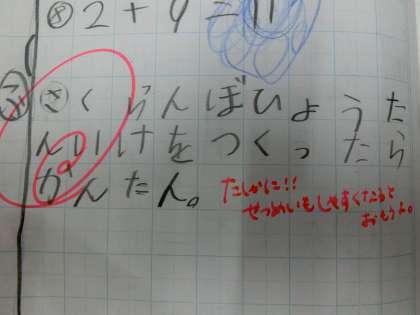 ⑧2+9=11
ふ さくらんぼひょうた
んいけをつくったら
かんたん。
たしかに!!
せつめいもしやすくなると
おもうん。